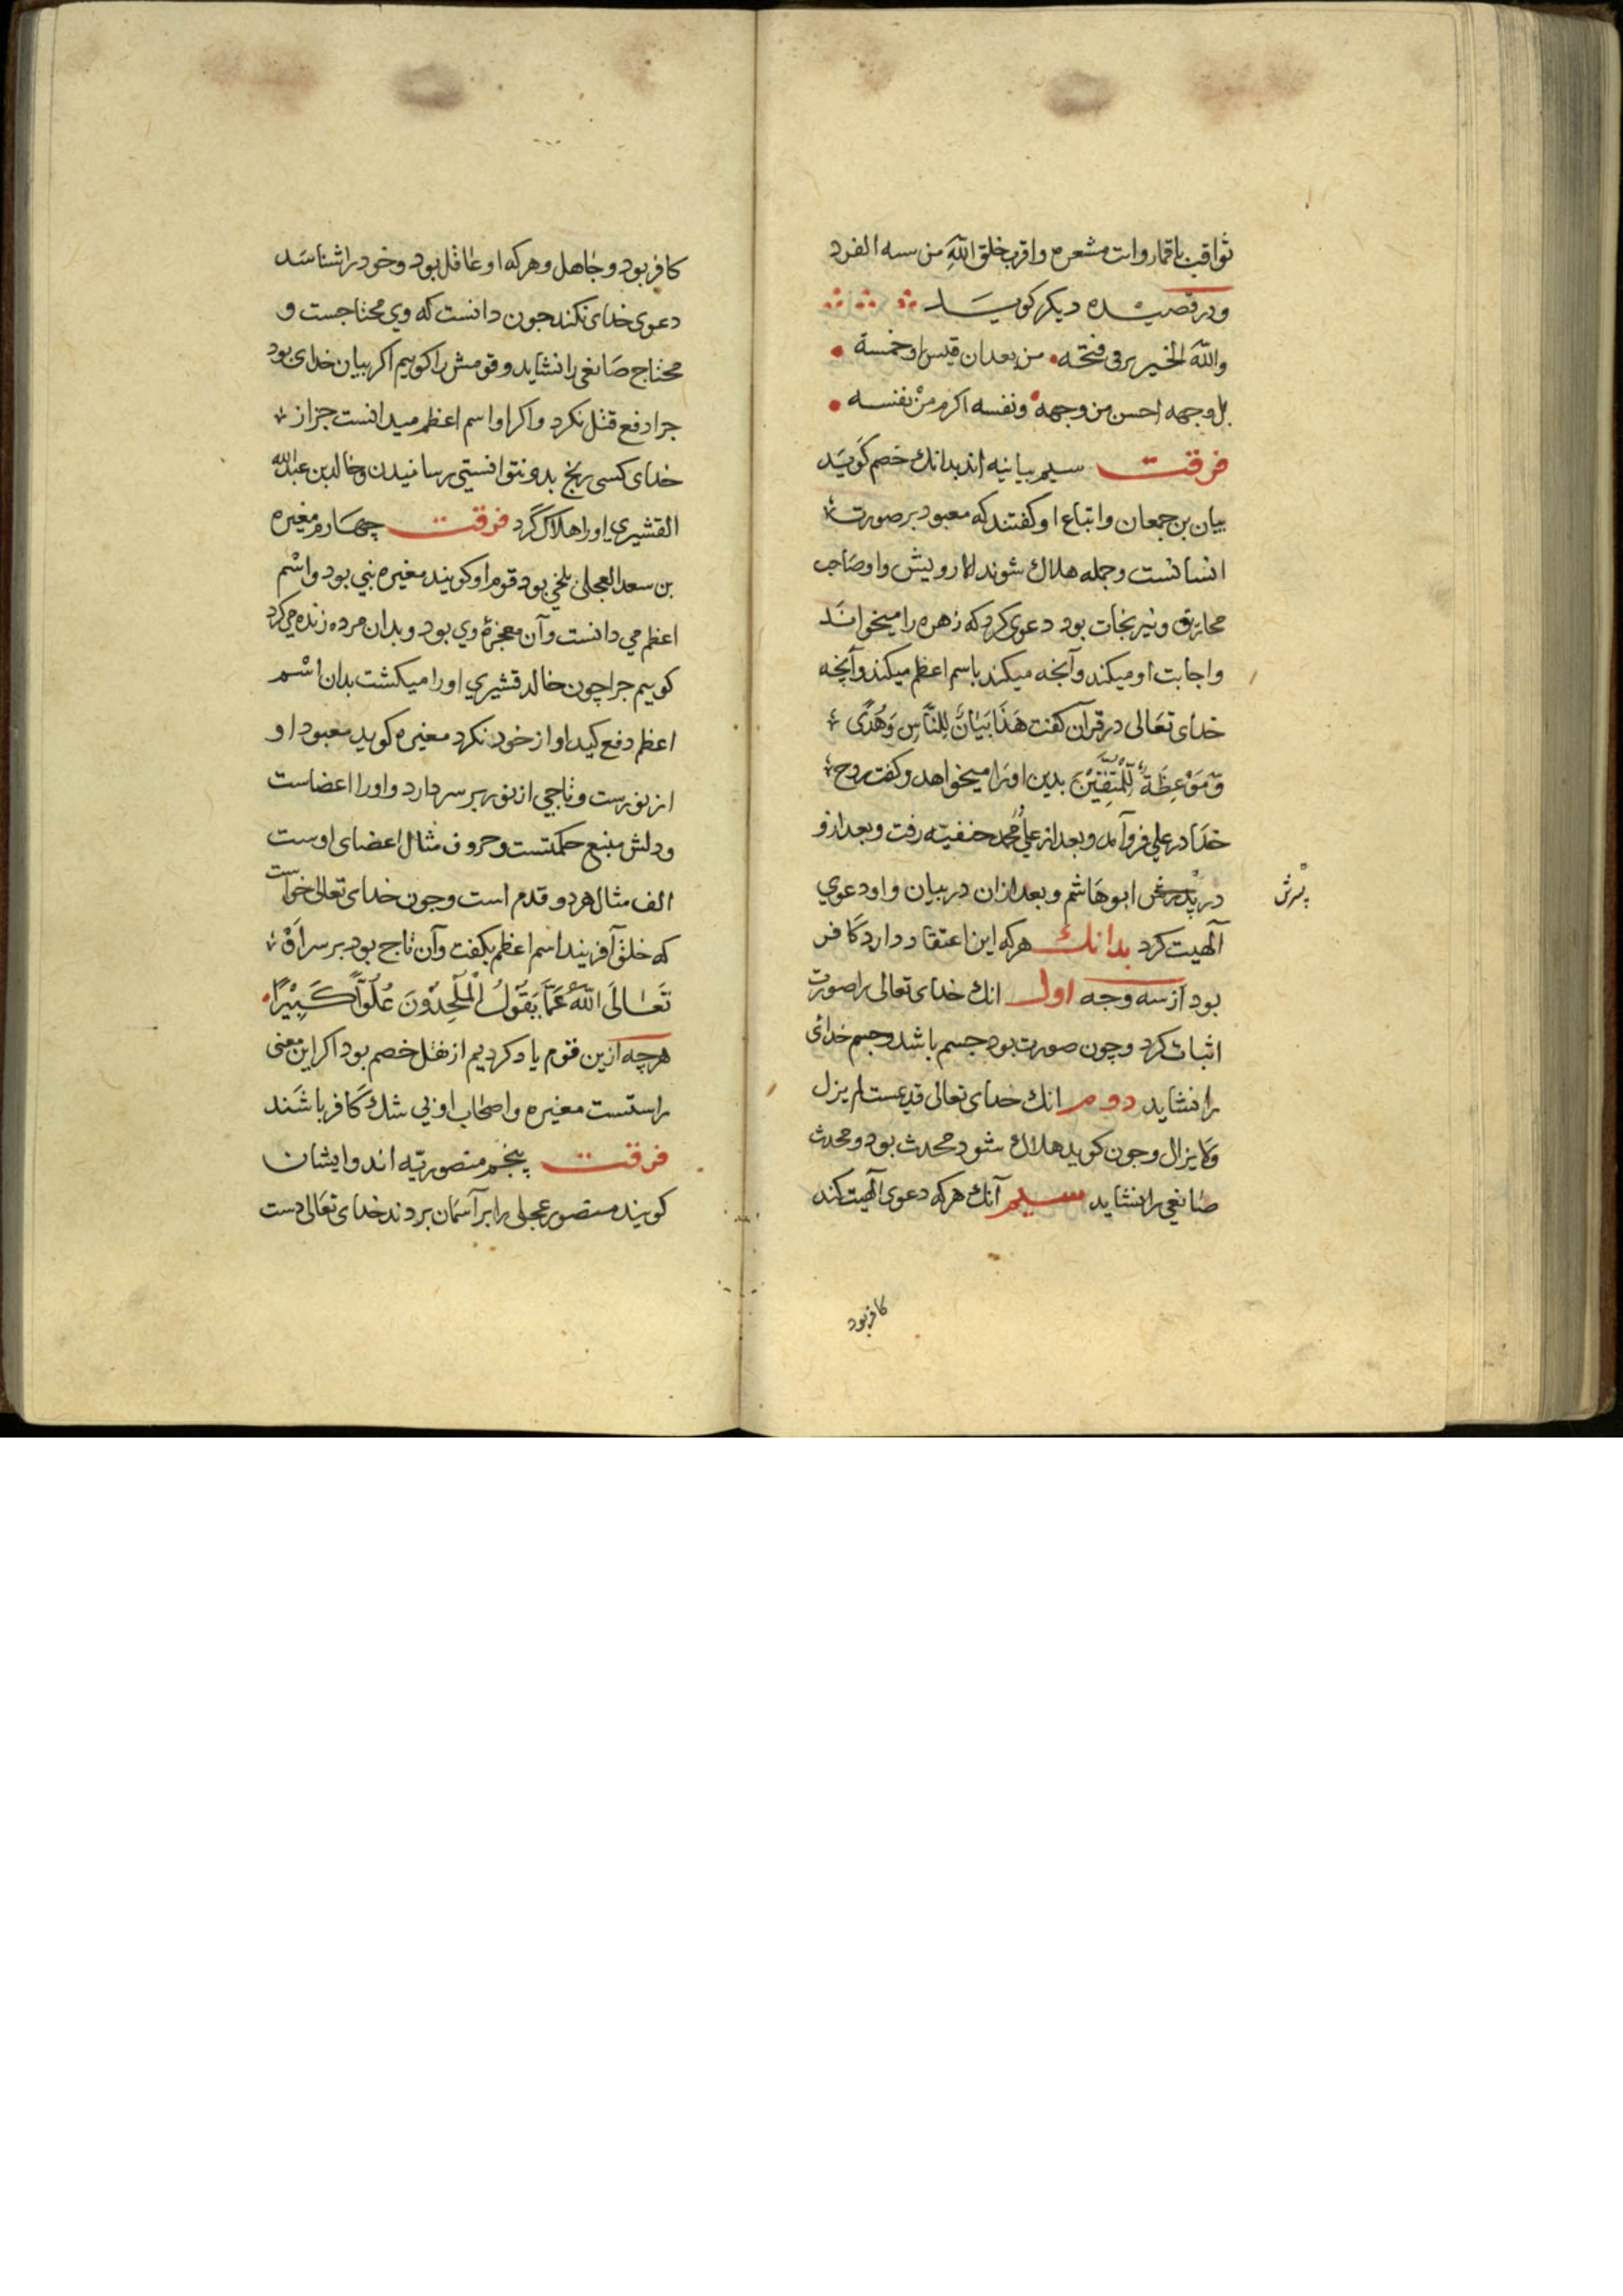 ثواقب باقمار وانت مشعره واقرب خلق الله من سسه الفرد
ودر قصیده دیکر کویـد
والله الخیر برقی فنحته من بعدان قیس او خمسة
بل وجهه احسن من وجهه ونفسه اکرم من نفسه
فرقت سیم بیانیه اند بدانك خصم کوید
بیان بن جمعان واتباع او کفتند که معبود بر صورت
انسانست وجمله هلاك شوند الا رویش واو صاحب
مخاریق ونیرنجات بود دعوی کرد که زهره را میخواند
واجابت او میکند وآنجه میکند باسم اعظم میکند وآنچه
خدای تعالی در قرآن کفت هَذَا بَيَانٌ لِلنَّاسِ وَهُدًى
وَّمَوْعِظَةٌ لِّلْمُتَّقِيْنَ بدین اورا میخواهد وکفت روح
خدا در علی فرو آمد وبعد از علی محمد حنفیه رفت وبعد ازو
در پدرش ابوهاشم وبعد ازان در بیان واو دعوی
پسرش
آلهیت کرد بدانك هرکه این اعتقاد دارد کافر
بود از سه وجه اول انك خدای تعالی را صورت
اثبات کرد وچون صورت بود جسم باشد وجسم خدائی
را نشاید دوم انك خدای تعالی قدیمست لم یزل
ولا یزال وجون کوید هلاك شود محدث بود ومحدث
صانعی را نشاید سیم آنك هرکه دعوی آلهیت کند
کافر بود
کافر بود وجاهل وهرکه او عاقل بود وخود را شناسد
دعوی خدای نکند جون دانست که وی محتاجست و
محتاج صانعی را نشاید وقومش را کوییم اکر بیان خدای بود
جرا دفع قتل نکرد واکر او اسم اعظم میدانست جز از
خدای کسی رنج بدو نتوانستی رسانیدن وخالد بن عبدالله
القشیری اورا هلاك کرد فرقت چهارم مغیره
بن سعد العجلی بلخی بود قوم او کویند مغیره نبی بود واسم
اعظم می دانست وآن معجزۀ وی بود وبدان مرده زنده می کرد
کوییم جرا چون خالد قشیری اورا میکشت بدان اسم
اعظم دفع کید او از خود نکرد مغیره کوید معبود او
از نورست وتاجی از نور بر سر دارد واورا اعضاست
ودلش منبع حکمتست وحروف مثال اعضای اوست
الف مثال هر دو قدم است وجون خدای تعالی خواست
که خلق آفریند اسم اعظم بکفت وآن تاج بود بر سر او
تَعَالَى اللّٰهُ عَمَّا يَقُولُ الْمُلْحِدُوْنَ عُلُوًّا كَبِيْرًا
هرچه ازین قوم یاد کردیم از نقل خصم بود اکر این معنی
راستست مغیره واصحاب او بی شك کافر باشند
فرقت پنجم منصوریّه اند وایشان
کویند منصور عجلی را بر آسمان بردند خدای تعالی دست